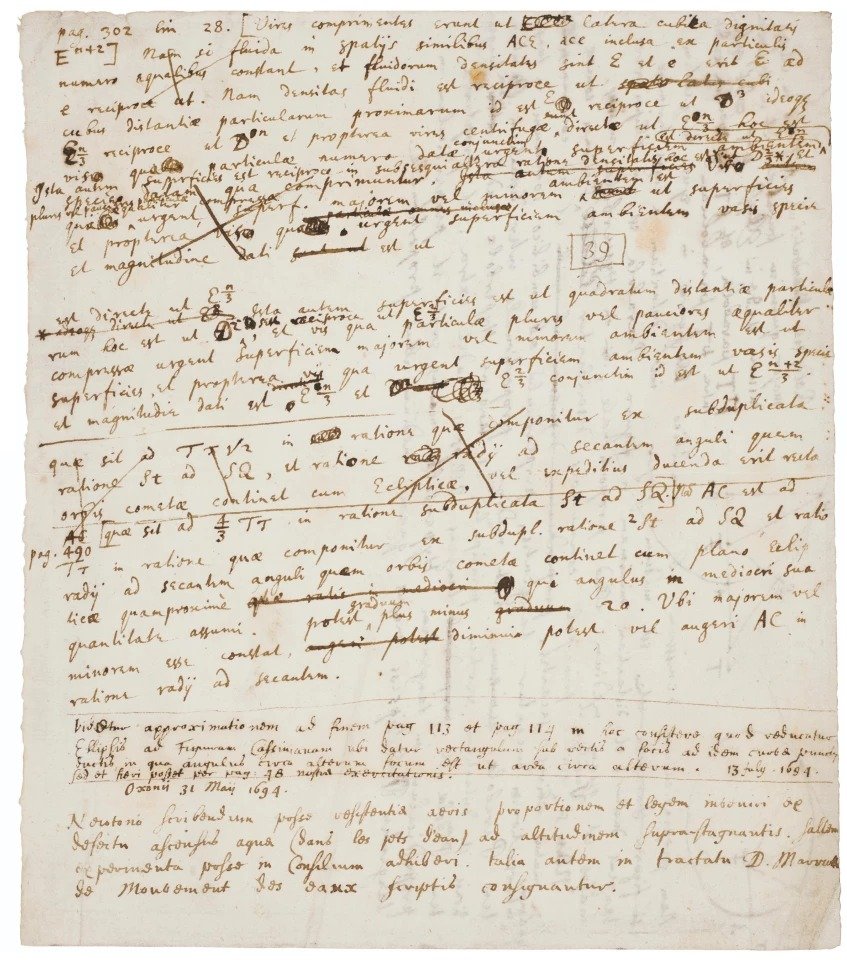 pag. 302 lin 28. [Vires comprimentes erunt ut latera cubica dignitatis
E^{n+2}] Nam si fluida in spatijs similibus ACE, ace inclusa ex particulis
numero æqualibus constant, et fluidorum densitates sint E et e erit E ad
e reciproce ut. Nam densitas fluidi est reciproce ut
cubus distantiæ particularum proximarum id est E reciproce ut D^3 ideoque
E^{n/3} reciproce ut D^n et propterea vires centrifugæ directe ut E^{n/3} hoc est
vis qua particulæ numero datæ urgent superficiem ambientem
Ista autem superficies est reciproce in subsesquialtera ratione densitatis hoc est
species qua comprimuntur. Ista autem superficies
plures vel pauciores compressæ ambientem est
quæ urgent superf. majorem vel minorem ut superficies
et propterea vis qua urgent superficiem ambientem vasis specie
et magnitudine dati est ut
39
est directe ut E^{n/3} Ista autem superficies est ut quadratum distantiæ particula
* ideoque directe ut
rum hoc est ut D^2 reciproce ut E^{2/3}, et vis qua particulæ plures vel pauciores æqualiter
compressæ urgent superficiem majorem vel minorem ambientem est ut
superficies, et propterea vis qua urgent superficiem ambientem vasis specie
et magnitudie dati est E^{n/3} et E^{2/3} conjunctim id est ut E^{n+2/3}
quæ sit ad TT√2 in ratione quæ componitur ex subduplicata
ratione St ad SQ, et ratione radij ad secantem anguli quem
orbis cometæ continet cum Eclipticæ. vel expeditius ducenda erit recta
[quæ sit ad 4/3 TT in ratione subduplicata St ad SQ. AC est ad
pag. 490
TT in ratione quæ componitur ex subdupl. ratione 2St ad SQ et ratio
radij ad secantem anguli quem orbis cometæ continet cum plano Eclip
ticæ quamproxime quæ ratio in mediocri qui angulus in mediocri sua
quantitate assumi potest graduum plus minus graduum 20. Ubi majorem vel
minorem esse constat, augeri potest diminui potest vel augeri AC in
ratione radij ad secantem.
Videtur approximationem ad finem pag 113 et pag 114 in hoc consistere quod reducatur
Ellipsis ad Figuram Cassinianam ubi datur rectangulum sub rectis a focis ad idem curvæ punctum
ductis in qua angulus circa alterum focum est ut area circa alterum.
sed et fieri posset per pag. 48 nostræ exercitationis. 13 July 1694.
Oxonij 31 Maij 1694.
Neutono scribendum posse resistentia aeris proportionem et legem inveniri ex
defectu ascensus aquæ (dans les jets d'eau) ad altitudinem supra-stagnantis. saltem
experimenta posse in Consilium adhiberi. talia autem in tractatu D. Marriotte
de Mouvement des eaux scriptis consignantur.